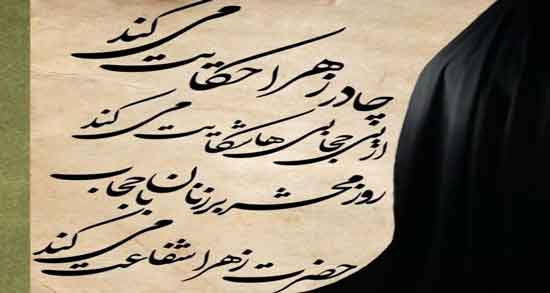 چادر زهرا حکایت می کند
از بی حجابی ها شکایت می کند
روز محشر بر زنان با حجاب
حضرت زهرا شفاعت می کند